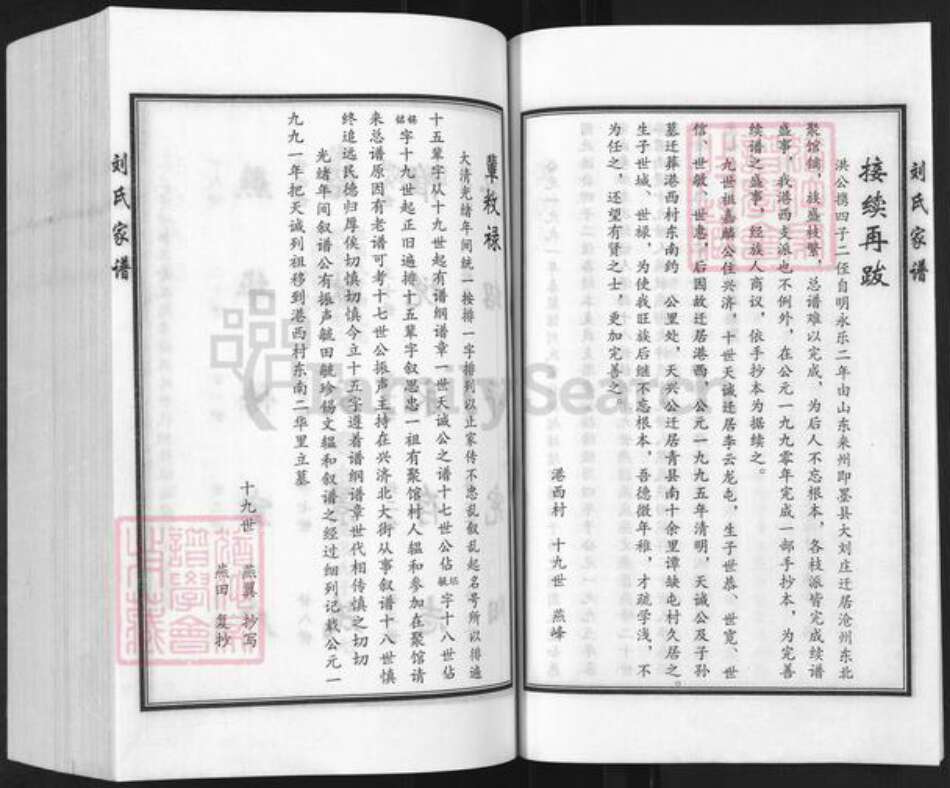 刘氏家谱
接续再跋
洪公携四子二侄自明永乐二年由山东来州即墨县大刘庄迁居沧州东北
聚馆铺，族盛枝繁，总谱难以完成，为后人不忘根本，各枝派皆完成续谱
盛事，我港西支派也不例外，在公元一九九零年完成一部手抄本，为完善
续谱之盛事，经族人商议，依手抄本为据续之。
九世祖嘉麟公住兴济，十世天诚迁居李云龙屯，生子世恭、世宽、世
信、世敏、世惠，后因故迁居港西，公元一九九五年清明，天诚公及子孙
墓迁葬港西村东南约一公里处，天兴公迁居青县南十余里谭缺屯村久居之。
生子世城、世禄，为使我旺族后继不忘根本，吾德微年稚，才疏学浅，不
为任之，还望有贤之士，更加完善之。
港西村 十九世 燕峰
辈叙禄
大清光绪年间统一按排一字排列以止家传不忠乱叙乱起名号所以排遍
十五辈字从十九世起有谱纲谱章一世天诚公之谱十七世公佔毓坯字十八世佔
佑锡字十九世起正旧遍排十五辈字叙思忠一祖有聚馆村人韫和参加在聚馆请
来总谱原因有老谱可考十七世公振声主持在兴济北大街从事叙谱十八世慎
终追远民德归厚侯切慎切慎今立十五字遵着谱纲谱章世代相传慎之切切
光绪年间叙谱公有振声毓田毓珍锡文韫和叙谱之经过细列记栽公元一
九九一年把天诚列祖移到港西村东南二华里立墓
十九世 燕翼 抄写
燕田 复抄
刘氏家谱
FamilySearch